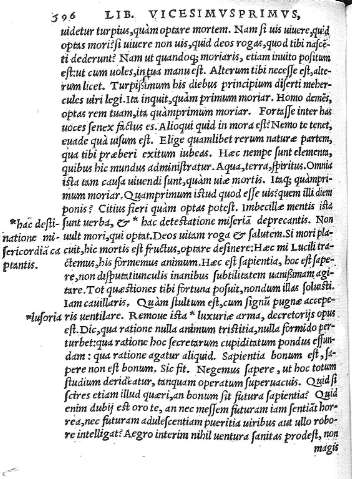 596 LIB. VICESIMVSPRIMVS,
uidetur turpius, quàm optare mortem. Nam si uis uiuere, quid
optas mori? si uiuere non uis, quid deos rogas, quod tibi nascē
ti dederunt? Nam ut quandoq; moriaris, etiam inuito positum
est: ut cum uoles, in tua manu est. Alterum tibi necesse est, alte-
rum licet. Turpissimum his diebus principium diserti meher-
cules uiri legi. Ita inquit, quàm primum moriar. Homo demēs,
optas rem tuam, ita quàmprimum moriar. Fortasse inter has
uoces senex factus es. Alioqui quid in mora est? Nemo te tenet,
euade quà uisum est. Elige quamlibet rerum naturæ partem,
qua tibi præberi exitum iubeas. Hæc nempe sunt elementa,
quibus hic mundus administratur. Aqua, terra, spiritus. Omnia
ista tam causa uiuendi sunt, quàm uiæ mortis. Ita; quàmpri-
mum moriar. Quamprimum istud quod esse uis? quem illi diem
ponis? Citius fieri quàm optas potest. Imbecillæ mentis ista
*hac desti- sunt uerba, & * hac detestatione miseriā deprecantis. Non
natione mi- uult mori, qui optat. Deos uitam roga & salutem. Si mori pla-
sericordiā ca cuit, hic mortis est fructus, optare desinere: Hæc mi Lucili tra-
ptantis. ctemus, his formemus animum. Hæc est sapientia, hoc est sape-
re, non disputatiunculis inanibus subtilitatem uanißimam agi-
tare. Tot quæstiones tibi fortuna posuit, nondum illas soluisti.
Iam cauillaris. Quàm stultum est, cum signū pugnæ accepe-
*lusoria ris uentilare. Remoue ista * luxuriæ arma, decretorijs opus
est. Dic, qua ratione nulla animum tristitia, nulla formido per
turbet: qua ratione hoc secretarum cupiditatum pondus effun-
dam: qua ratione agatur aliquid. Sapientia bonum est, sa-
pere non est bonum. Sic fit. Negemus sapere, ut hoc totum
studium derideatur, tanquam operatum superuacuis. Quid si
scires etiam illud quæri, an bonum sit futura sapientia? Quid
enim dubij est oro te, an nec messem futuram iam sentiāt hor-
rea, nec futuram adulescentiam pueritia uiribus aut ullo robo-
re intelligat? Aegro interim nihil uentura sanitas prodest, non
magis